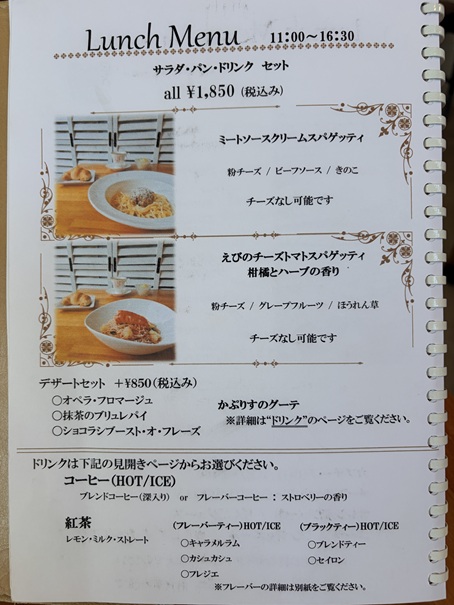 Lunch Menu 11:00～16:30
サラダ・パン・ドリンク セット
all ¥1,850 (税込み)
ミートソースクリームスパゲッティ
粉チーズ / ビーフソース / きのこ
チーズなし可能です
えびのチーズトマトスパゲッティ
柑橘とハーブの香り
粉チーズ / グレープフルーツ / ほうれん草
チーズなし可能です
デザートセット +¥850(税込み)
○オペラ・フロマージュ
○抹茶のブリュレパイ
○ショコラシブースト・オ・フレーズ
かぷりすのグーテ
※詳細は"ドリンク"のページをご覧ください。
ドリンクは下記の見開きページからお選びください。
コーヒー(HOT/ICE)
ブレンドコーヒー(深入り) or フレーバーコーヒー : ストロベリーの香り
紅茶
レモン・ミルク・ストレート
(フレーバーティー)HOT/ICE
○キャラメルラム
○カシュカシュ
○フレジエ
(ブラックティー)HOT/ICE
○ブレンドティー
○セイロン
※フレーバーの詳細は別紙をご覧ください。